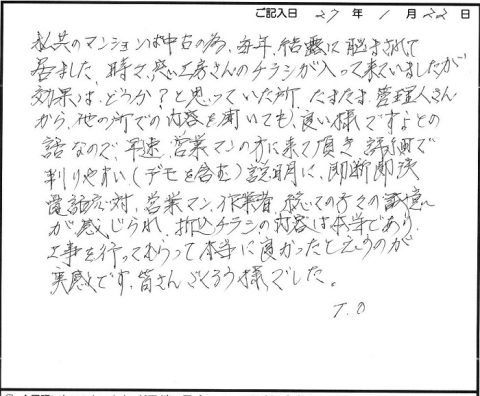 ご記入日 27 年 1 月 22 日
私共のマンションは中古の為、毎年、結露に悩まされて
居ました。時々、窓工房さんのチラシが入って来ていましたが
効果は、どうか?と思っていた所、たまたま、管理人さん
から、他の所での内容を聞いても、良い様ですよとの
話なので、早速、営業マンの方に来て頂き、詳細で
判りやすい(デモを含む)説明に、即断即決
電話応対、営業マン、作業者、総ての方々の誠意
が感じられ、折込チラシの内容は本当であり、
工事を行ってもらって本当に良かったと云うのが
実感です。皆さんごくろう様でした。
T.O